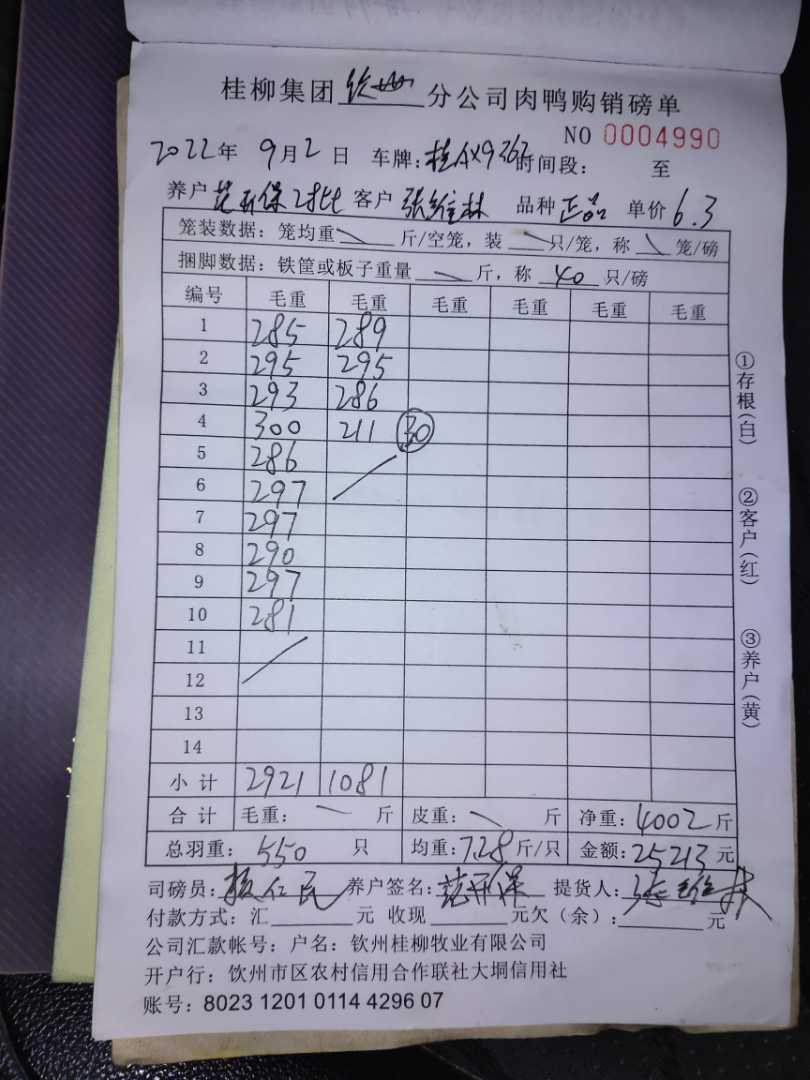 桂柳集团 钦州 分公司肉鸭购销磅单
NO 0004990
2022年 9月2日 车牌:桂AX9362 时间段: 至
养户 保 2批 客户 张维林 品种 正品 单价 6.3
笼装数据:笼均重 斤/空笼,装 只/笼,称 笼/磅
捆脚数据:铁筐或板子重量 斤,称 40 只/磅
编号 毛重 毛重 毛重 毛重 毛重 毛重
1 285 289
2 295 295
3 293 286
4 300 211 30
5 286
6 297
7 297
8 290
9 297
10 281
11
12
13
14
小计 2921 1081
合计 毛重: 斤 皮重: 斤 净重:4002斤
总羽重:550 只 均重:7.28斤/只 金额:25213元
司磅员: 仁民 养户签名: 保 提货人:张维林
付款方式:汇 元 收现 元欠(余): 元
公司汇款帐号:户名:钦州桂柳牧业有限公司
开户行:饮州市区农村信用合作联社大垌信用社
账号:8023 1201 0114 4296 07
①存根(白)
②客户(红)
③养户(黄)